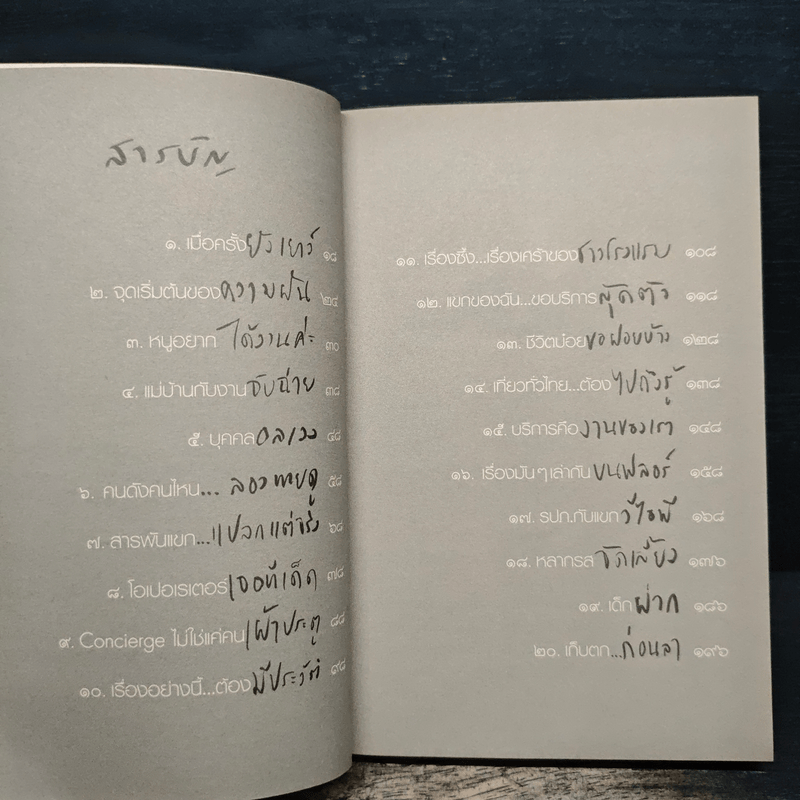 สารบัญ
๑. เมื่อครั้งยังเยาว์ ๑๘
๒. จุดเริ่มต้นของความฝัน ๒๔
๓. หนูอยากได้งานค่ะ ๓๐
๔. แม่บ้านกับงานจับฉ่าย ๓๘
๕. บุคคลอลเวง ๔๘
๖. คนดังคนไหน... ลองทายดู ๕๘
๗. สารพันแขก...แปลกแต่จริง ๖๘
๘. โอเปอเรเตอร์เจอทีเด็ด ๗๘
๙. Concierge ไม่ใช่แค่คนเฝ้าประตู ๘๘
๑๐. เรื่องอย่างนี้...ต้องมีประวัติ ๙๘
๑๑. เรื่องซึ้ง...เรื่องเศร้าของชาวโรงแรม ๑๐๘
๑๒. แขกของฉัน...ขอบริการสุดตัว ๑๑๘
๑๓. ชีวิตบ๋อยขอฝอยบ้าง ๑๒๘
๑๔. เที่ยวทั่วไทย...ต้องไปถึงรู้ ๑๓๘
๑๕. บริการคืองานของเรา ๑๔๘
๑๖. เรื่องมันๆเล่ากันบนฟลอร์ ๑๕๘
๑๗. รปภ.กับแขกวีไอพี ๑๖๘
๑๘. หลากรสจัดเลี้ยง ๑๗๖
๑๙. เด็กฝาก ๑๘๖
๒๐. เก็บตก...ก่อนลา ๑๙๖